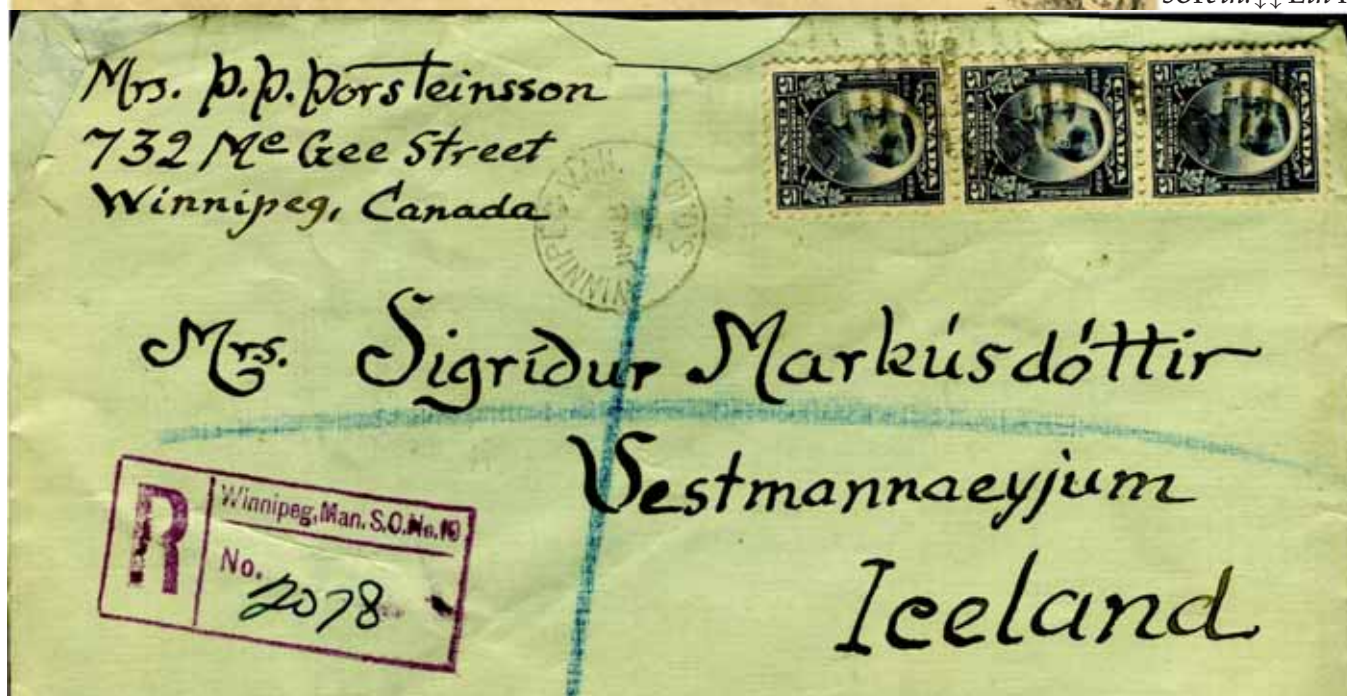 Mrs. Þ.Þ. Þorsteinsson
732 Mc Gee Street
Winnipeg, Canada
CANADA
CANADA
CANADA
5
5
5
5
5
5
WINNIPEG
Mrs. Sigríður Markúsdóttir
Vestmannaeyjum
Iceland
R
Winnipeg, Man. S.O. No. 19
No. 2078